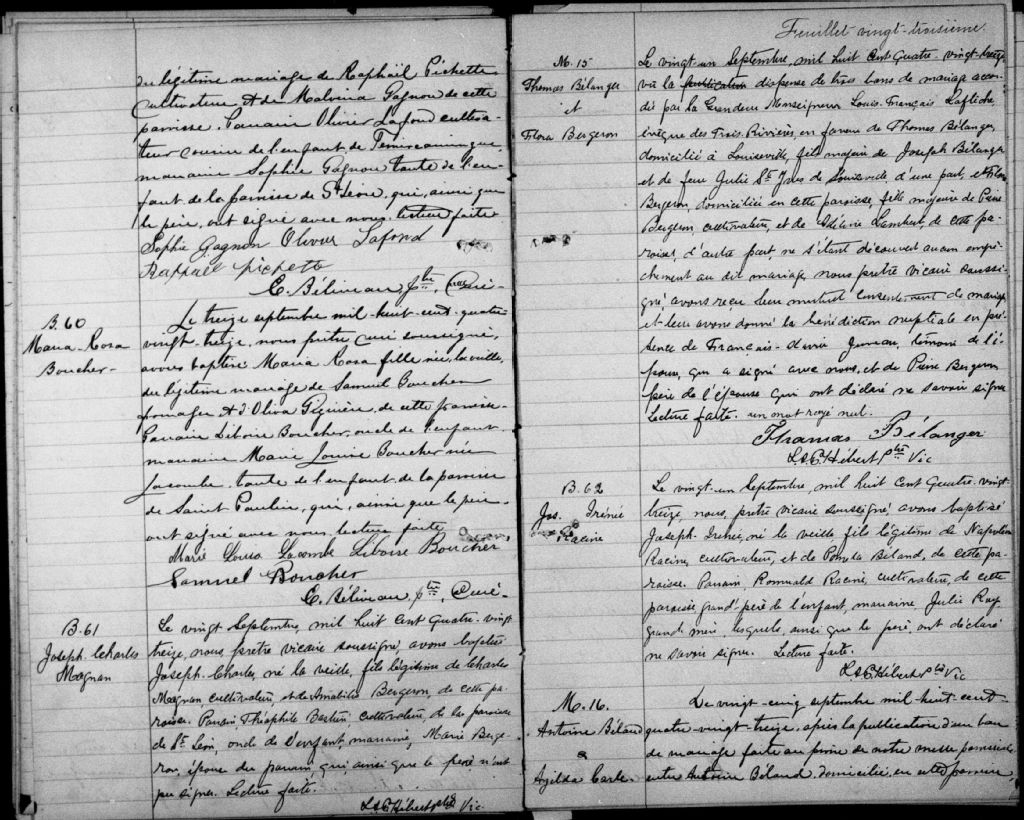 du légitime mariage de Raphaël Pichette
Cultivateur & de Malvina Gagnon de cette
paroisse. Parrain Olivier Lafond cultiva-
teur cousin de l'enfant de Temiscamingue,
marraine Sophie Gagnon tante de l'en-
fant de la paroisse de St Léon, qui, ainsi que
le père, ont signé avec nous. lecture faite
Sophie Gagnon Olivier Lafond
Raphaël Pichette
E. Béliveau Ptre, Curé-
B. 60
Maria-Rosa
Boucher-
Le treize septembre mil-huit-cent-quatre
vingt-treize, nous prêtre curé soussigné,
avons baptisé Maria Rosa fille née, la veille,
du légitime mariage de Samuel Boucher
fromager & d'Oliva de cette paroisse-
Parrain Liboire Boucher, oncle de l'enfant-
marraine Marie Louise Boucher née
Lacombe tante de l'enfant de la paroisse
de Saint Paulin, qui, ainsi que le père
ont signé avec nous, lecture faite
Marie Louise Lacombe Liboire Boucher
Samuel Boucher
E. Béliveau, Ptre, Curé-
B. 61
Joseph Charles
Magnan
Le vingt Septembre, mil huit Cent Quatre-vingt
treize, nous prêtre vicaire soussigné, avons baptisé
Joseph-Charles, né la veille, fils légitime de Charles
Magnan, cultivateur, et de Bergeron, de cette pa-
roisse. Parrain Théophile cultivateur, de la paroisse
de St Léon, oncle de l'enfant, marraine, Marie Berge-
ron, épouse du parrain, qui ainsi que le père n'ont
pu signer. Lecture faite.
L.A.E. Hébert ptre Vic
Feuillet vingt-troisième
M. 15
Thomas Bélanger
&
Flora Bergeron
Le vingt-un Septembre, mil huit Cent Quatre-vingt-treize
vu la publication dispense de trois bans de mariage accor-
dée par Sa Grandeur Monseigneur Louis-François Laflèche,
évêque des Trois-Rivières, en faveur de Thomas Bélanger,
domicilié à Louiseville, fils majeur de Joseph Bélanger
et de feue Julie St Yves de Louiseville d'une part, et Flora
Bergeron, domiciliée en cette paroisse, fille majeure de Pierre
Bergeron cultivateur, et de Lambert, de cette pa-
roisse, d'autre part, ne s'étant découvert aucun empê-
chement au dit mariage, nous prêtre vicaire soussi-
gné, avons reçu leur mutuel consentement de mariage
et leur avons donné la bénédiction nuptiale en pré-
sence de François-Xavier témoin de l'é-
poux, qui a signé avec nous, et de Pierre Bergeron
père de l'épouse qui ont déclaré ne savoir signer
Lecture faite. un mot rayé nul.
Thomas Bélanger
L.A.E. Hébert Ptre Vic
B. 62
Jos. Irénée
Racine
Le vingt-un Septembre, mil huit Cent Quatre-vingt-
treize, nous, prêtre vicaire soussigné, avons baptisé
Joseph-Irénée, né la veille, fils légitime de Napoléon
Racine, cultivateur, et de Béland, de cette pa-
roisse. Parrain, Romuald Racine, cultivateur, de cette
paroisse, grand-père de l'enfant, marraine Julie
grand-mère, lesquels, ainsi que le père ont déclaré
ne savoir signer. Lecture faite.
L.A.E. Hébert Ptre Vic
M. 16.
Antoine Béland
&
Azilda
Le vingt-cinq septembre mil-huit cent-
quatre-vingt-treize, après la publication d'un ban
de mariage faite au prône de notre messe paroissiale
entre Antoine Béland, domicilié, en cette paroisse,